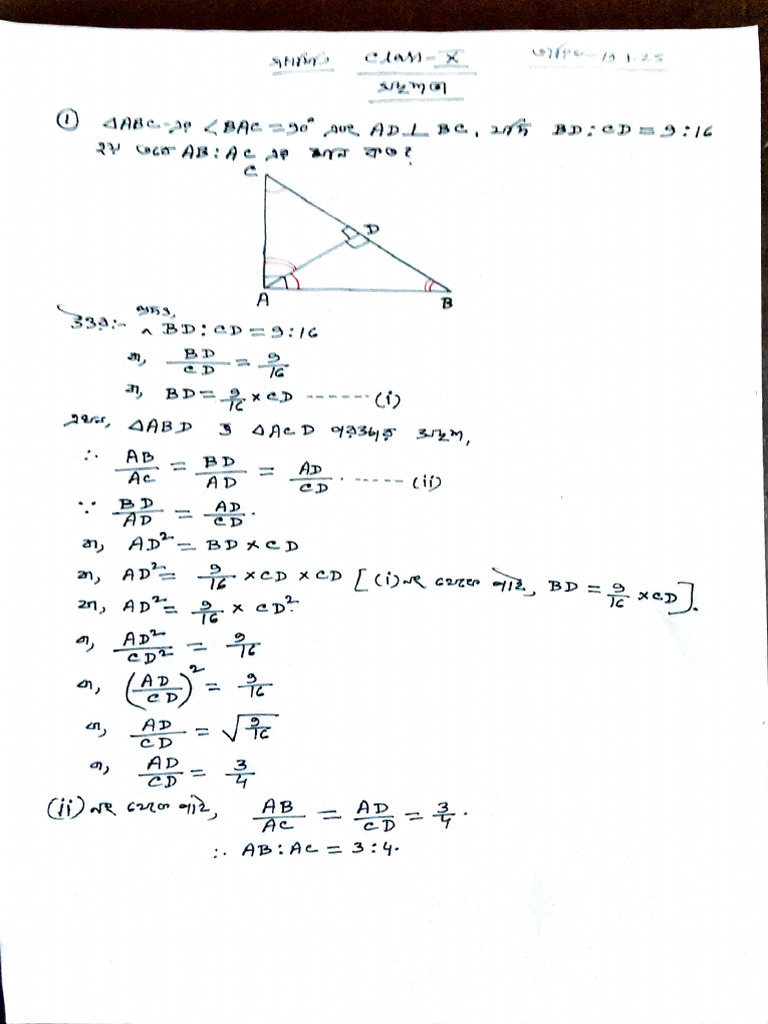 গণিত Class - X তারিখ - 19.1.25
সদৃশতা
① △ABC-এর ∠BAC = 90° এবং AD ⊥ BC, যদি BD : CD = 9 : 16
হয় তবে AB : AC এর মান কত?
C
D
A B
উত্তর:- BD : CD = 9 : 16
বা, BD/CD = 9/16
বা, BD = 9/16 × CD ------- (i)
এখন, △ABD ও △ACD পরস্পর সদৃশ,
∴ AB/AC = BD/AD = AD/CD. ------ (ii)
∵ BD/AD = AD/CD.
বা, AD² = BD × CD
বা, AD² = 9/16 × CD × CD [(i) নং থেকে পাই, BD = 9/16 × CD].
বা, AD² = 9/16 × CD².
বা, AD²/CD² = 9/16
বা, (AD/CD)² = 9/16
বা, AD/CD = √9/16
বা, AD/CD = 3/4
(ii) নং থেকে পাই, AB/AC = AD/CD = 3/4.
∴ AB : AC = 3 : 4.